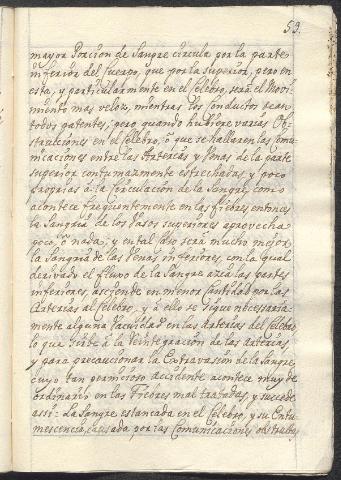 53.
mayor Porcion de Sangre circula por la parte
inferior del Cuerpo, que por la superior, pero en
esta, y particularmente en el Celebro, será el Movi
miento mas veloz, mientras los Conductos sean
todos patentes; pero quando huviere varias Ob-
strucciones en el Celebro, ò que se hallaren las Comu
nicaciones entre las Arterias y Venas de la parte
superior contumazmente estrechadas, y poco
propias à la Circulacion de la Sangre, como
acontece frequentemente en las fiebres, entonces
la Sangria de los Vasos superiores aprovecha
poco, ò nada, y en tal caso será mucho mejor
la Sangria de las Venas inferiores, con la qual
derivado el fluxo de la Sangre azia las partes
inferiores, asciende en menor Cantidad por las
Arterias al Celebro, y à ello se sigue necessaria-
mente alguna en las Arterias del Celebro
lo que sirbe à la reintegracion de las Arterias,
y para precaucionar la Extravasion de la Sangre,
cuyo tan pernicioso accidente acontece muy de
ordinario en las Fiebres mal tratadas, y sucede
assi: La Sangre estancada en el Celebro, y su Entu
mescencia, causada por las Comunicaciones obstruidas